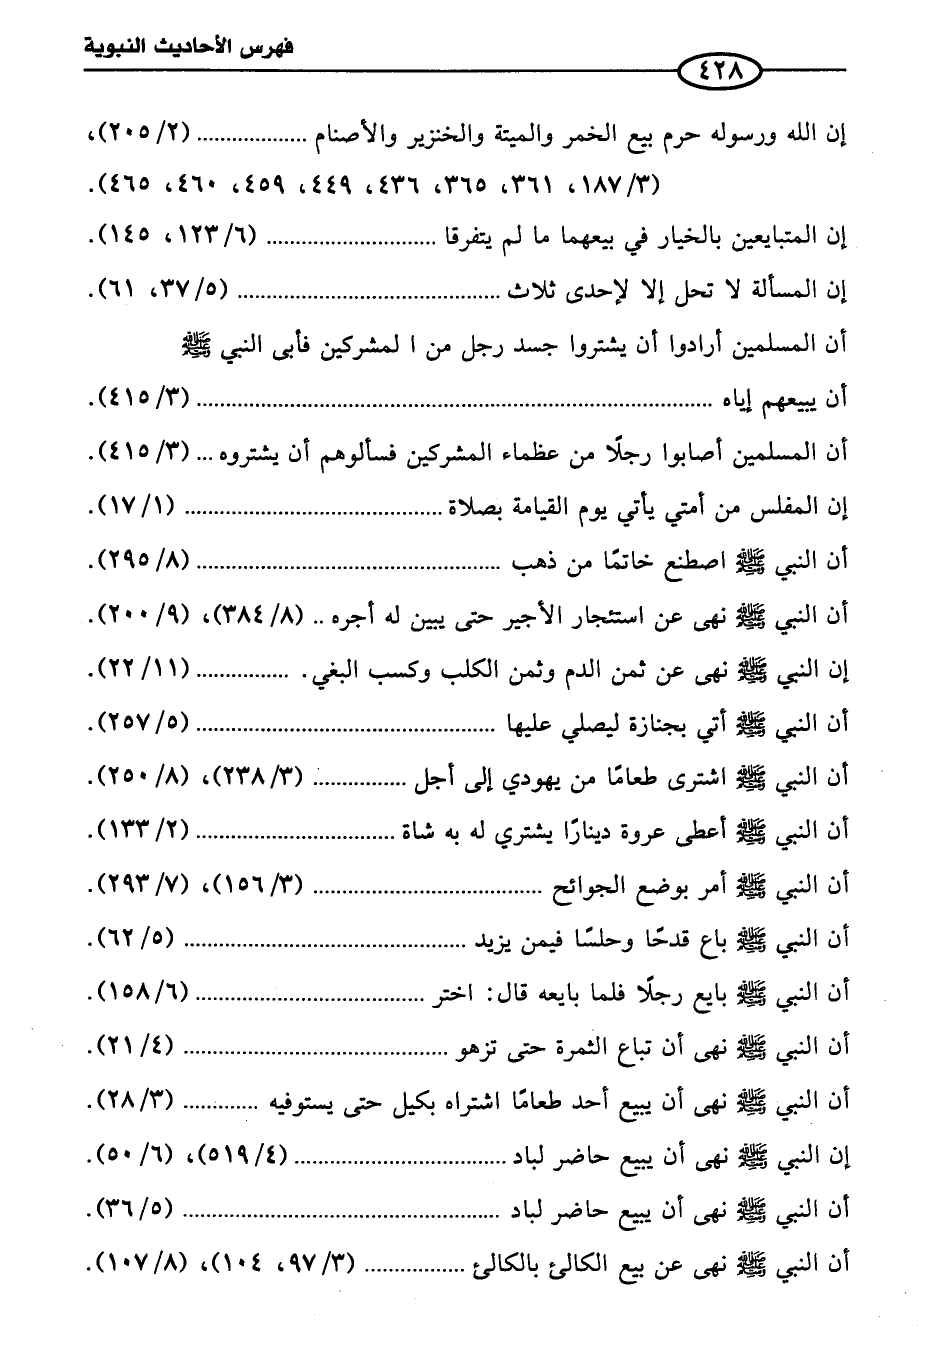 فهرس الأحاديث النبوية
٤٢٨
إن الله ورسوله حرم بيع الخمر والميتة والخنزير والأصنام ................... (٢/ ٢٠٥)،
(٣/ ١٨٧، ٣٦١، ٣٦٥، ٤٣٦، ٤٤٩، ٤٥٩، ٤٦٠، ٤٦٥).
إن المتبايعين بالخيار في بيعهما ما لم يتفرقا ............................. (٦/ ١٢٣، ١٤٥).
إن المسألة لا تحل إلا لإحدى ثلاث ............................................. (٥/ ٣٧، ٦١).
أن المسلمين أرادوا أن يشتروا جسد رجل من ا لمشركين فأبى النبي ﷺ
أن يبيعهم إياه ........................................................................................ (٣/ ٤١٥).
أن المسلمين أصابوا رجلًا من عظماء المشركين فسألوهم أن يشتروه ... (٣/ ٤١٥).
إن المفلس من أمتي يأتي يوم القيامة بصلاة ............................................ (١/ ١٧).
أن النبي ﷺ اصطنع خاتمًا من ذهب .................................................... (٨/ ٢٩٥).
أن النبي ﷺ نهى عن استئجار الأجير حتى يبين له أجره .. (٨/ ٣٨٤)، (٩/ ٢٠٠).
إن النبي ﷺ نهى عن ثمن الدم وثمن الكلب وكسب البغي. ................ (١١/ ٢٢).
أن النبي ﷺ أتي بجنازة ليصلي عليها ................................................... (٥/ ٢٥٧).
أن النبي ﷺ اشترى طعامًا من يهودي إلى أجل ................ (٣/ ٢٣٨)، (٨/ ٢٥٠).
أن النبي ﷺ أعطى عروة دينارًا يشتري له به شاة .................................. (٢/ ١٣٣).
أن النبي ﷺ أمر بوضع الجوائح ....................................... (٣/ ١٥٦)، (٧/ ٢٩٣).
أن النبي ﷺ باع قدحًا وحلسًا فيمن يزيد ................................................ (٥/ ٦٢).
أن النبي ﷺ بايع رجلًا فلما بايعه قال: اختر ....................................... (٦/ ١٥٨).
أن النبي ﷺ نهى أن تباع الثمرة حتى تزهو ............................................. (٤/ ٢١).
أن النبي ﷺ نهى أن يبيع أحد طعامًا اشتراه بكيل حتى يستوفيه ............. (٣/ ٢٨).
إن النبي ﷺ نهى أن يبيع حاضر لباد .................................... (٤/ ٥١٩)، (٦/ ٥٠).
أن النبي ﷺ نهى أن يبيع حاضر لباد ...................................................... (٥/ ٣٦).
أن النبي ﷺ نهى عن بيع الكالئ بالكالئ ................. (٣/ ٩٧، ١٠٤)، (٨/ ١٠٧).